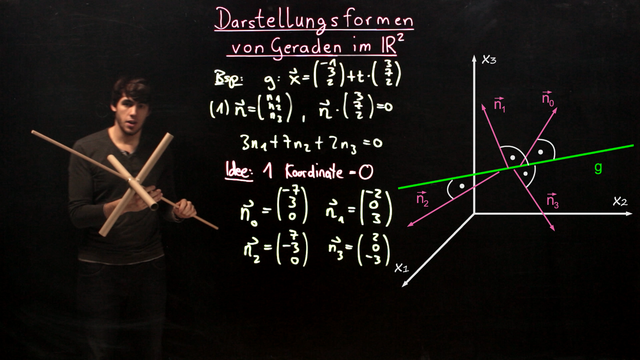 Darstellungsformen
von Geraden im ℝ²
Bsp: g: x⃗ = (-1 3 2) + t · (3 7 2)
(1) n⃗ = (n₁ n₂ n₃), n⃗ · (3 7 2) = 0
3n₁ + 7n₂ + 2n₃ = 0
Idee: 1 Koordinate = 0
n⃗₀ = (-7 3 0) n⃗₁ = (-2 0 3)
n⃗₂ = (7 -3 0) n⃗₃ = (2 0 -3)
x₃
n⃗₁ n⃗₀
g
n⃗₂ n⃗₃
x₂
x₁